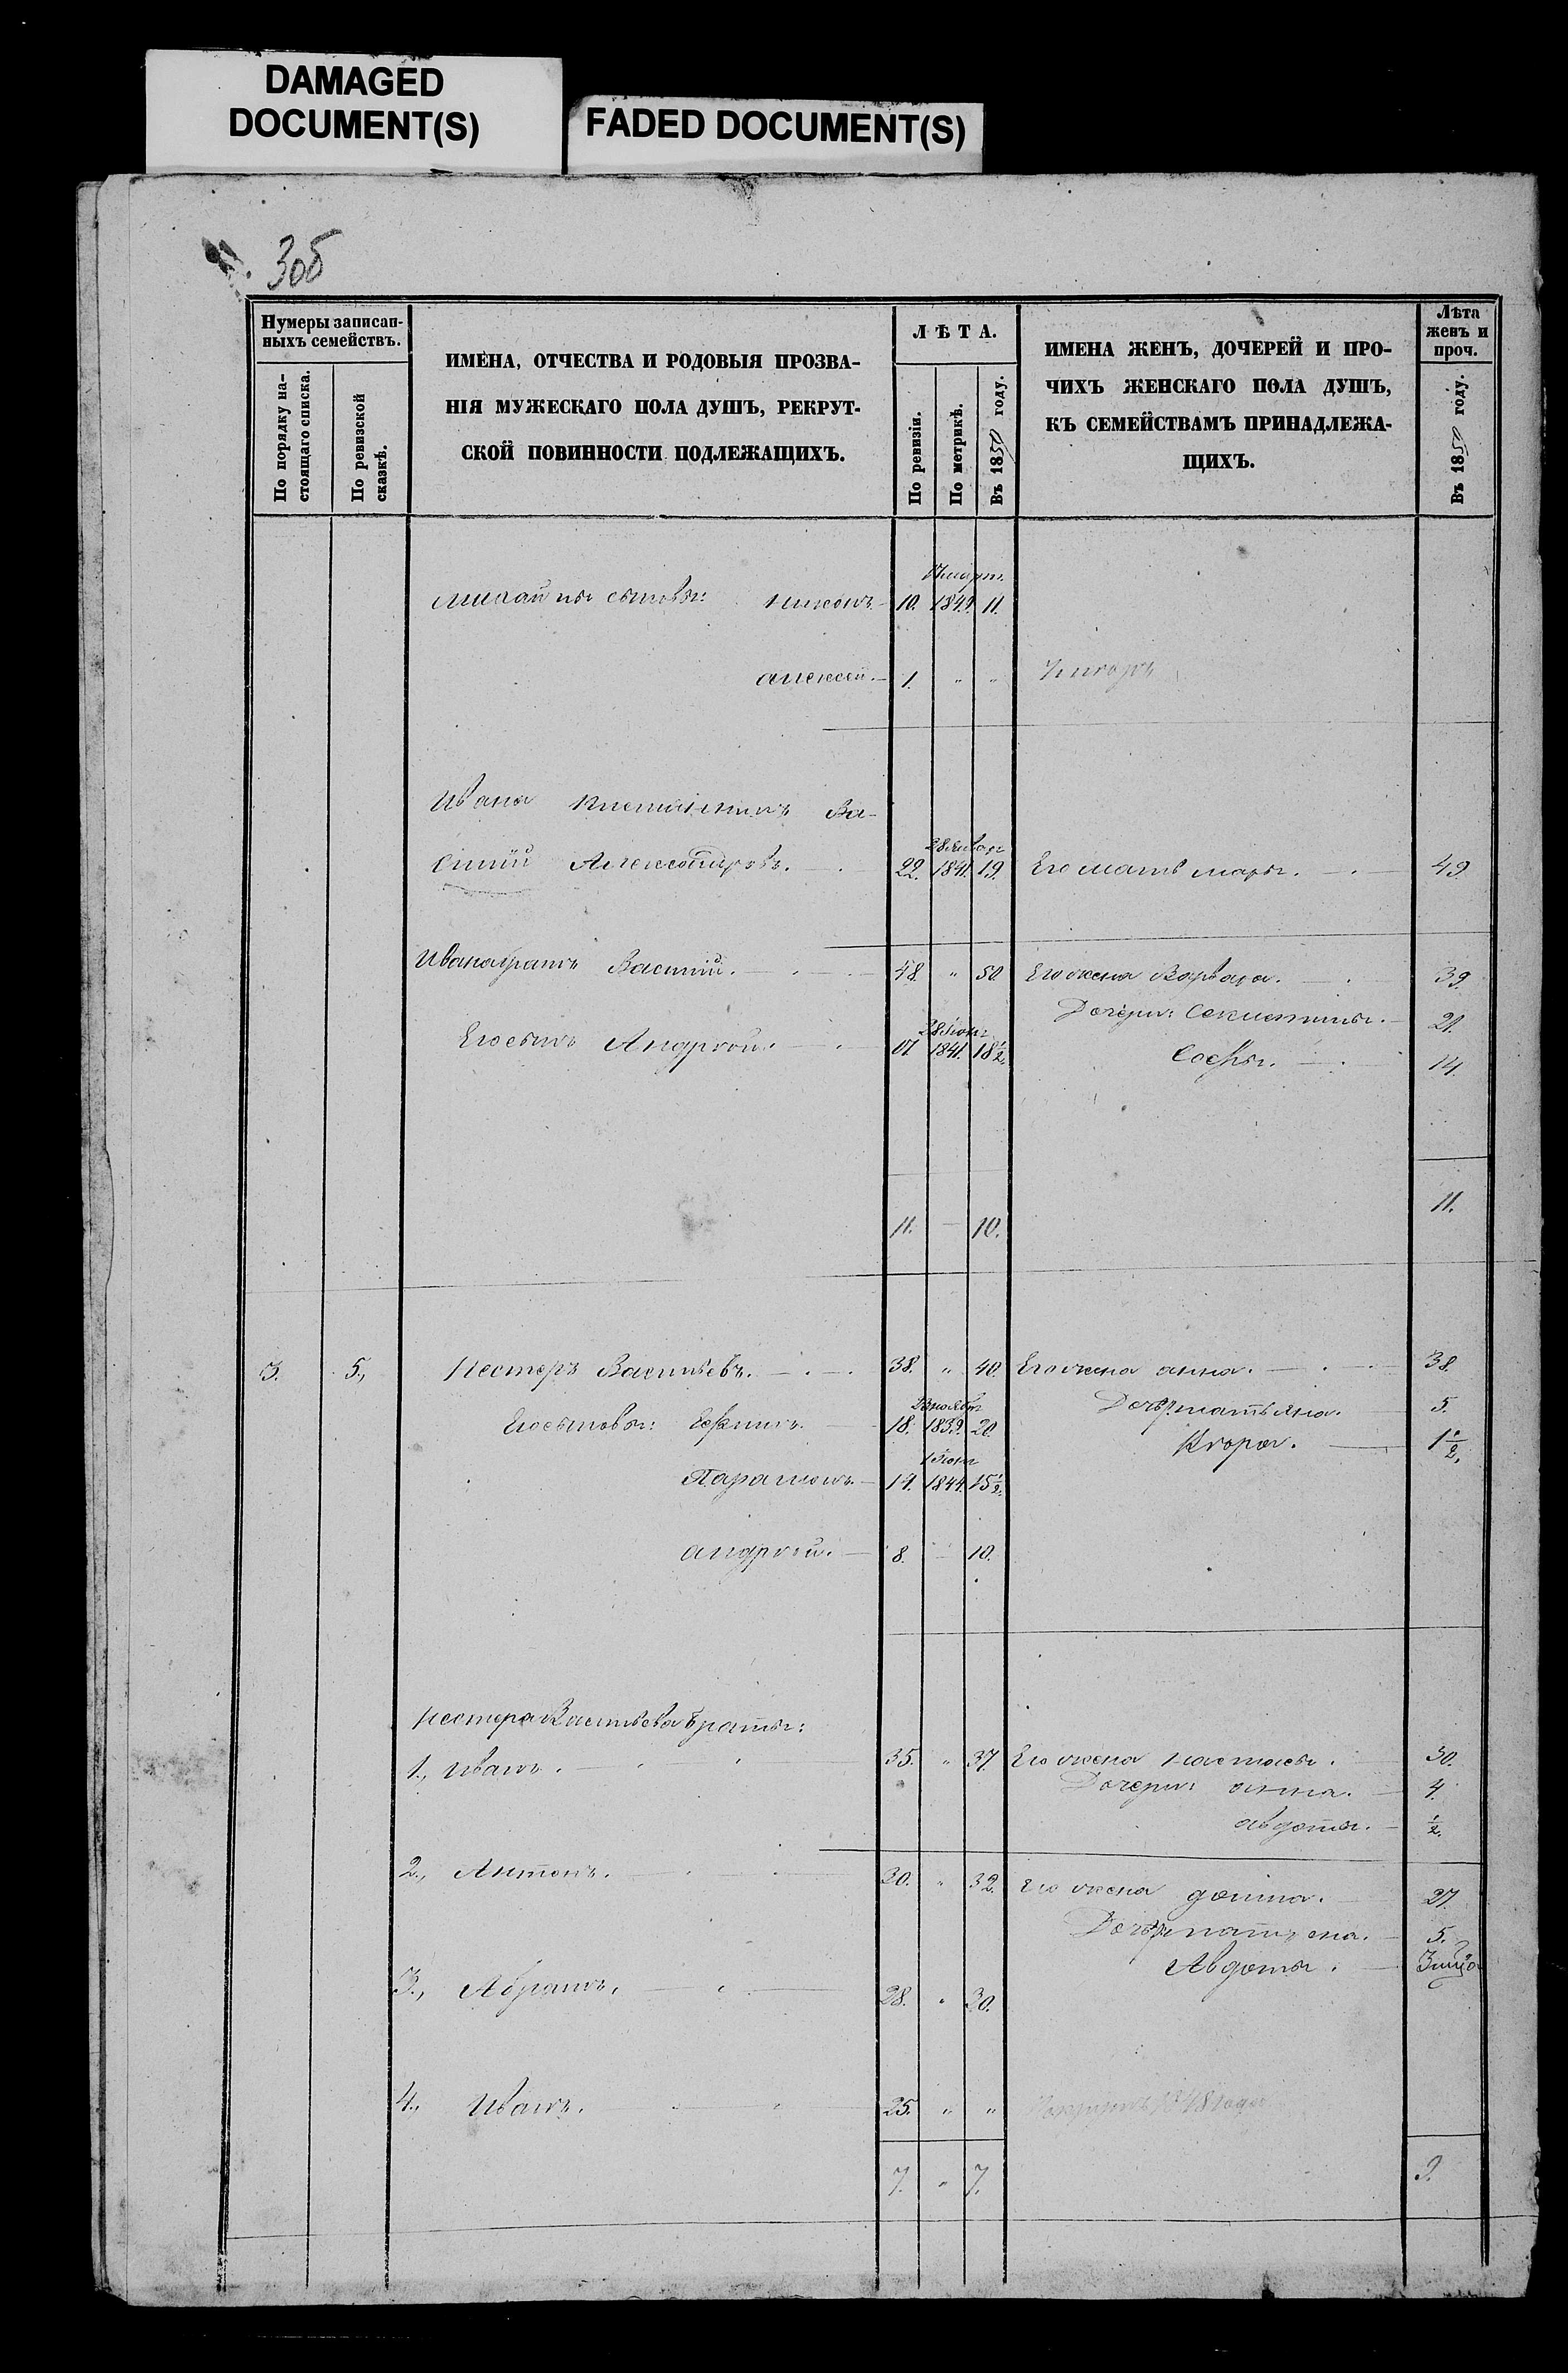 DAMAGED
DOCUMENT(S)
FADED DOCUMENT(S)
306
Нумеры записан-
ныхъ семействъ.
По порядку на-
стоящаго списка.
По ревизской
сказкѣ.
ИМЕНА, ОТЧЕСТВА И РОДОВЫЯ ПРОЗВА-
НІЯ МУЖЕСКАГО ПОЛА ДУШЪ, РЕКРУТ-
СКОЙ ПОВИННОСТИ ПОДЛЕЖАЩИХЪ.
ЛѢТА.
По ревизіи.
По метрикѣ.
Въ 18 году.
ИМЕНА ЖЕНЪ, ДОЧЕРЕЙ И ПРО-
ЧИХЪ ЖЕНСКАГО ПОЛА ДУШЪ,
КЪ СЕМЕЙСТВАМЪ ПРИНАДЛЕЖА-
ЩИХЪ.
Лѣта
женъ и
проч.
Въ 18 году.
сыновья: Никонъ 10. 1849. 11.
Алексей. 1. " "
Ивана племянникъ Ва-
28 Январ
силій Александровъ. 22. 1841. 19. Его мать Марья. 49.
Ивана братъ Василій. 48. " 50. Его жена Варвара. 39.
Дочери: 21.
28 Іюня
Его сынъ Андрей. 17 1841. 18½. Софья. 14.
11. — 10. 11.
3. 5., Нестеръ Васильевъ. 38. " 40. Его жена Анна. 38.
Дочери: Татьяна. 5.
ноябр
Его сыновья: Ефимъ. 18. 1839. 20. 1½.
1 Іюня
Парамонъ 14. 1844. 15½.
Андрей. 8. 10.
Нестера Васильева братья:
1., Иванъ. 35. " 37. Его жена Настасья. 30.
Дочери: Анна. 4.
Авдотья. ½.
2., Антонъ. 30. " 32. Его жена Домна. 27.
5.
Авдотья.
3., Абрамъ. 28. " 30.
4., Иванъ. 25. " " 1848 года
7. " 7. 9.